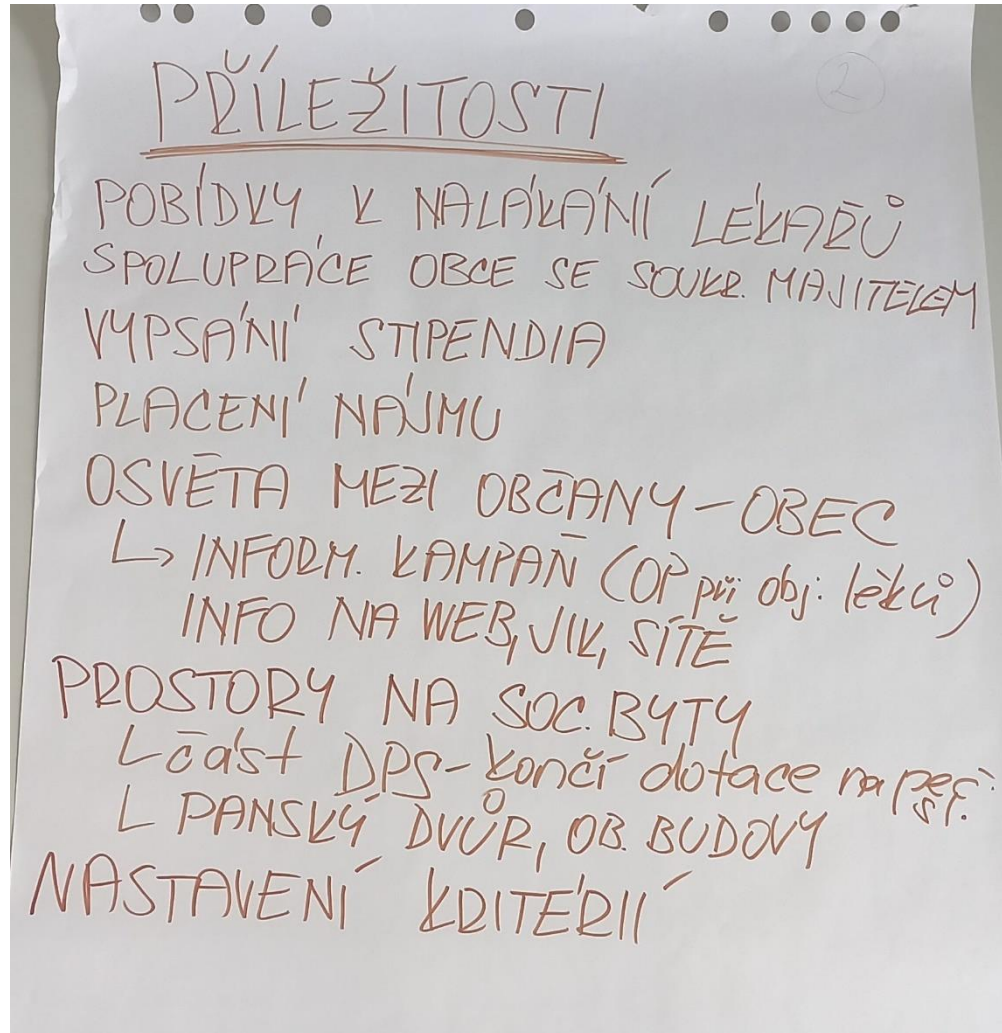 2
PŘÍLEŽITOSTI
POBÍDKY K NALÁKÁNÍ LÉKAŘŮ
SPOLUPRÁCE OBCE SE SOUKR. MAJITELEM
VYPSÁNÍ STIPENDIA
PLACENÍ NÁJMU
OSVĚTA MEZI OBČANY – OBEC
↳ INFORM. KAMPAŇ (OP při obj. léků)
INFO NA WEB, JIK, SÍTĚ
PROSTORY NA SOC. BYTY
L část DPS – končí dotace na
L PANSKÝ DVŮR, OB. BUDOVY
NASTAVENÍ KRITÉRIÍ